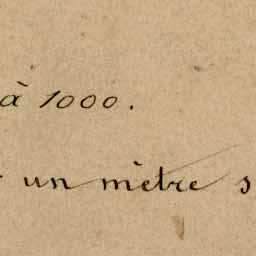 à 1000.
un mètre s